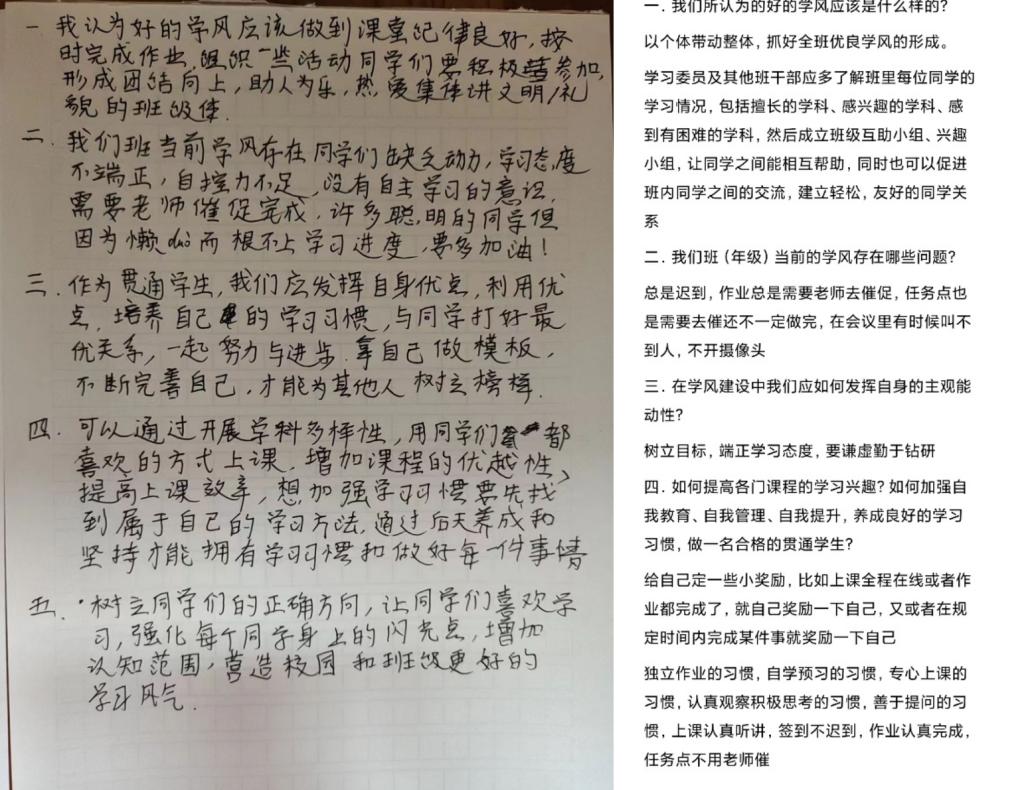 一 我认为好的学风应该做到课堂纪律良好，按
时完成作业，组织一些活动同学们要积极参加，
形成团结向上，助人为乐，热爱集体讲文明/礼
貌的班级体.
二. 我们班当前学风存在同学们缺乏动力，学习态度
不端正，自控力不足，没有自主学习的意识，
需要老师催促完成，许多聪明的同学但
因为懒duo而根不上学习进度，要多加油！
三. 作为贯通学生，我们应发挥自身优点，利用优
点，培养自己的学习习惯，与同学打好最
优关系，一起努力与进步.拿自己做模板，
不断完善自己，才能为其他人树立榜样.
四. 可以通过开展学科多样性，用同学们都
喜欢的方式上课，增加课程的优越性、
提高上课效率，想加强学习习惯要先找
到属于自己的学习方法.通过后天养成和
坚持才能拥有学习习惯和做好每一件事情
五. 树立同学们的正确方向，让同学们喜欢学
习，强化每个同学身上的闪光点，增加
认知范围，营造校园和班级更好的
学习风气.
一. 我们所认为的好的学风应该是什么样的?
以个体带动整体，抓好全班优良学风的形成。
学习委员及其他班干部应多了解班里每位同学的
学习情况，包括擅长的学科、感兴趣的学科、感
到有困难的学科，然后成立班级互助小组、兴趣
小组，让同学之间能相互帮助，同时也可以促进
班内同学之间的交流，建立轻松，友好的同学关
系
二. 我们班（年级）当前的学风存在哪些问题?
总是迟到，作业总是需要老师去催促，任务点也
是需要去催还不一定做完，在会议里有时候叫不
到人，不开摄像头
三. 在学风建设中我们应如何发挥自身的主观能
动性?
树立目标，端正学习态度，要谦虚勤于钻研
四. 如何提高各门课程的学习兴趣? 如何加强自
我教育、自我管理、自我提升，养成良好的学习
习惯，做一名合格的贯通学生?
给自己定一些小奖励，比如上课全程在线或者作
业都完成了，就自己奖励一下自己，又或者在规
定时间内完成某件事就奖励一下自己
独立作业的习惯，自学预习的习惯，专心上课的
习惯，认真观察积极思考的习惯，善于提问的习
惯，上课认真听讲，签到不迟到，作业认真完成，
任务点不用老师催